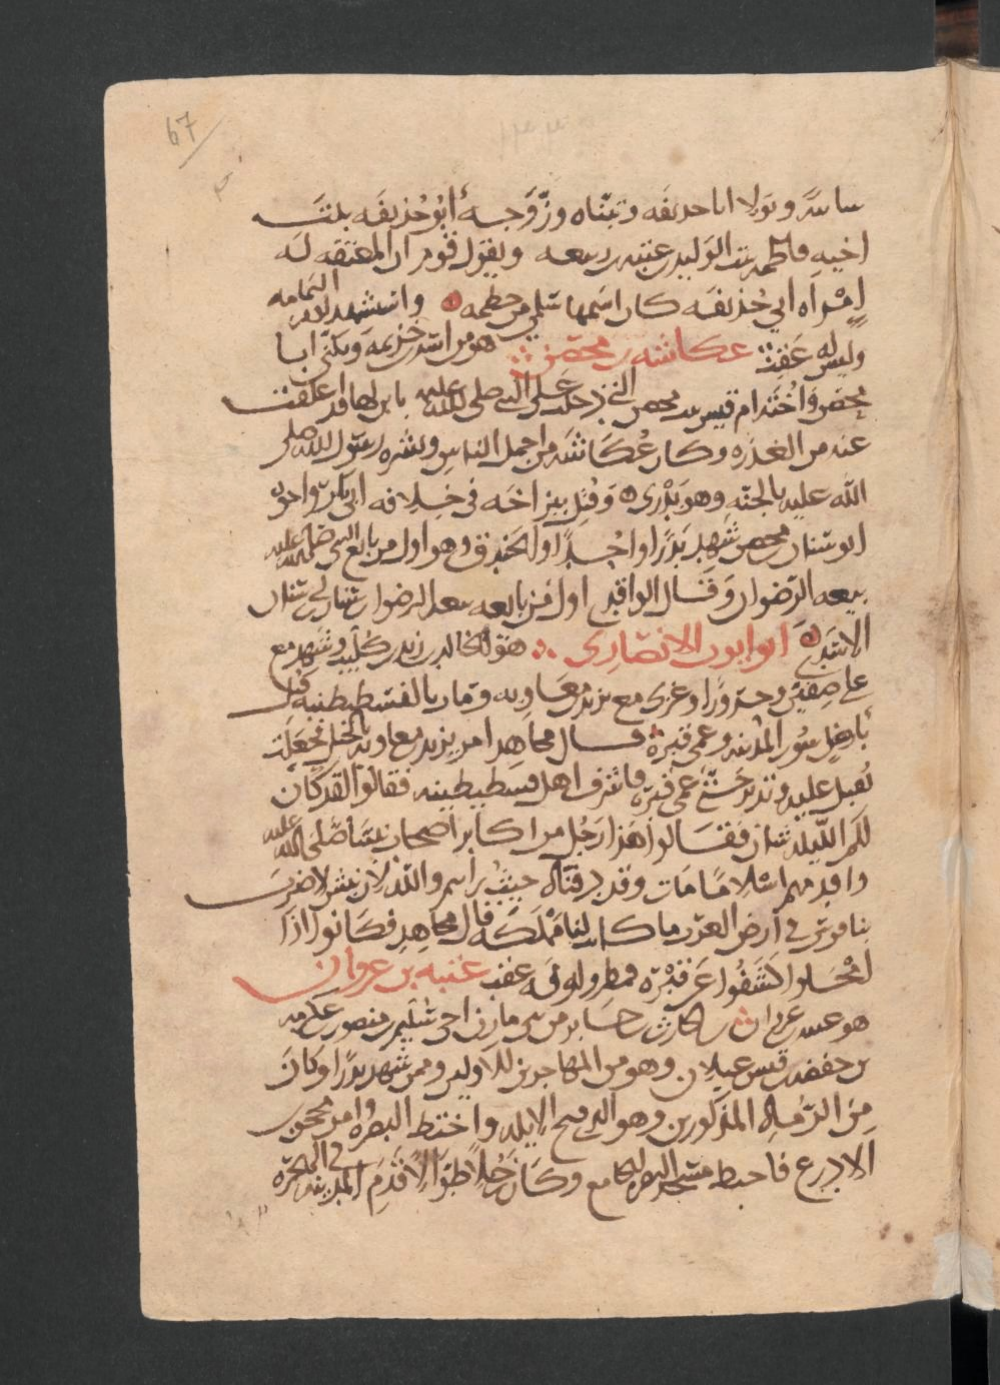 67
سايبة وتولا ابا حديفه وتبنّاه وزَوَّجه أبُو حُذيفَه بابنت
اخيهِ فاطمه بنت الوَليد بن عتبه بن ربيعه ويقول قوم ان المعتقه له
اِمْراه ابي حُذيفَه كان اسمها سَلمي من حطمه واستشهد يوم اليمامه
وليس له عَقِبٌ عكاشه بن محصن هو من اسد خزيمه ويكنى ابا
محصَن وَاُختُه ام قيس بنت محصن التي دخلت على النبي صلى الله عليه بابن لها قد اعلقت
عنه من العُذرَه وكان عُكاشَه من اجمل الناس وبشره رسول الله صلى
الله عليه بالجنّه وهو بَدْرى وَقُتِل ببزاخَه فى خلافه ابى بكر واخوه
ابو سنان بن محصن شَهِد بَدْرًا واُحُدًا والخندق وهو اول من بايع النبي صلى الله عليه
بيعه الرّضوان وَقال الواقدي اول من بايعه بيعه الرضوان سنان بن ابي سنان
الاسَدِي ابو ايوب الانصَارِى هو خالد بن زيد بن كليب وشَهِد مع
علي صِفين وحرورَا وغزى مع يزيد بن معَاويه ومات بالقسطنطينيه فدفن
بأصْل سُور المدينه وعمى قبره قال مجاهِد امر يزيد بن معاويه بالخيل فجعَلت
تُقبل عليه وتدبر حَتّى عمي قبره فاشرف اهل قسطنطينيه فقالوا لقد كان
لكم الليله شان فقالوا هَذا رَجُل من اكابر اصحاب نبينا صلى الله عليه
واقدمهم اسْلامًا مَات وقد دفناه حيث رايتم والله لان نبش لا ضرب
بناقوس في اَرض العرب ما كانت لنا مَمْلكَه قال مجاهِد فكانوا اذا
اَمْحَلوا كَشَفُوا عَن قبْره فمطروا وله عقب عتبه بن غزوان
هو عتبه بن غزوان بن الحارث بن جابر من بني مازن اخي سُليم بن منصور بن عكرمه
بن خصفه بن قيس عيلان وهو من المهاجرين الاولين وممن شهد بدرًا وكانَ
مِنَ الرّمُاه المذكورين وهو الذي فتح الابله واختط البصره وامر محجن
الادرع فاختط مسجد البصره الجامع وكَان رَجُلًا طوَالًا قدَم المدينه في الهجره